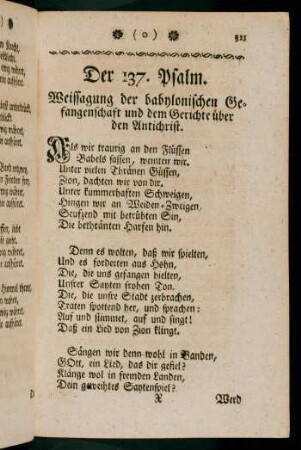 ( o )
321
Der 137. Psalm.
Weissagung der babylonischen Ge-
fangenschaft und dem Gerichte über
den Antichrist.
Als wir traurig an den Flüssen
Babels sassen, weinten wir.
Unter vielen Thränen Güssen,
Zion, dachten wir von dir.
Unter kummerhaften Schweigen,
Hingen wir an Weiden-Zweigen,
Seufzend mit betrübten Sin,
Die bethränten Harfen hin.
Denn es wolten, daß wir spielten,
Und es forderten aus Hohn,
Die, die uns gefangen hielten,
Unsrer Sayten frohen Ton.
Die, die unsre Stadt zerbrachen,
Traten spottend her, und sprachen:
Auf und stimmet, auf und singt!
Daß ein Lied von Zion klingt.
Sängen wir denn wohl in Banden,
GOtt, ein Lied, das dir gefiel?
Klänge wol in fremden Landen,
Dein geweihtes Saytenspiel?
X Werd